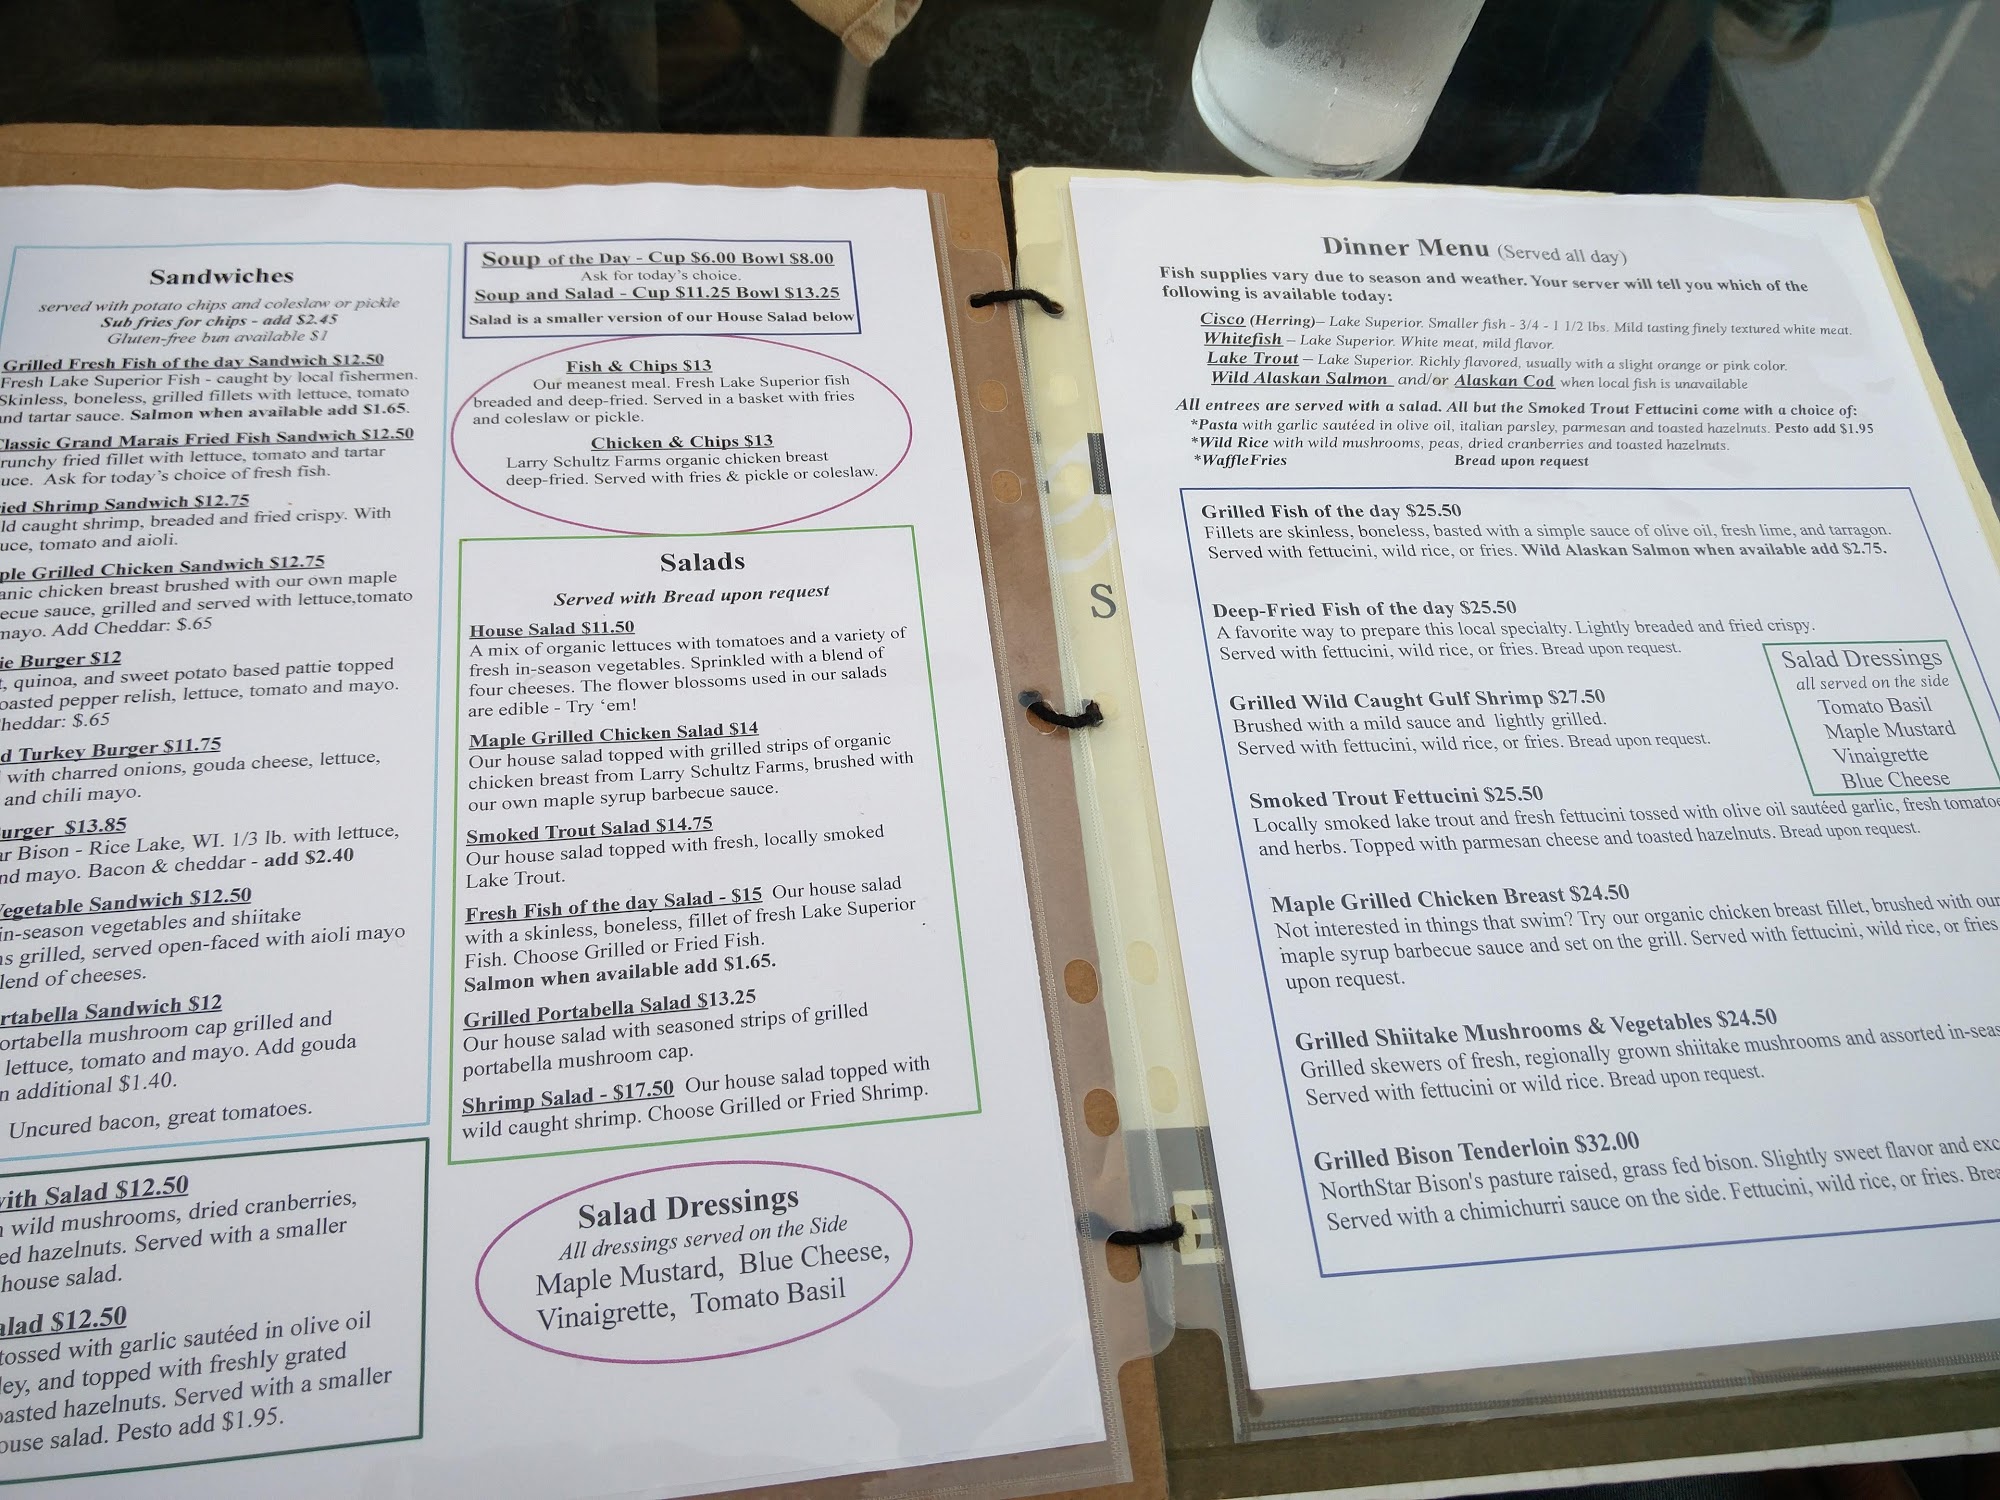 Sandwiches
served with potato chips and coleslaw or pickle
Sub fries for chips - add $2.45
Gluten-free bun available $1
Grilled Fresh Fish of the day Sandwich $12.50
Fresh Lake Superior Fish - caught by local fishermen.
Skinless, boneless, grilled fillets with lettuce, tomato
and tartar sauce. Salmon when available add $1.65.
Classic Grand Marais Fried Fish Sandwich $12.50
fried fillet with lettuce, tomato and tartar
Ask for today's choice of fresh fish.
Shrimp Sandwich $12.75
caught shrimp, breaded and fried crispy. With
tomato and aioli.
Grilled Chicken Sandwich $12.75
chicken breast brushed with our own maple
sauce, grilled and served with lettuce,tomato
mayo. Add Cheddar: $.65
Burger $12
quinoa, and sweet potato based pattie topped
pepper relish, lettuce, tomato and mayo.
$.65
Turkey Burger $11.75
with charred onions, gouda cheese, lettuce,
and chili mayo.
$13.85
Bison - Rice Lake, WI. 1/3 lb. with lettuce,
and mayo. Bacon & cheddar - add $2.40
Vegetable Sandwich $12.50
in-season vegetables and shiitake
grilled, served open-faced with aioli mayo
of cheeses.
Sandwich $12
mushroom cap grilled and
lettuce, tomato and mayo. Add gouda
additional $1.40.
Uncured bacon, great tomatoes.
with Salad $12.50
wild mushrooms, dried cranberries,
hazelnuts. Served with a smaller
house salad.
$12.50
tossed with garlic sautéed in olive oil
and topped with freshly grated
hazelnuts. Served with a smaller
salad. Pesto add $1.95.
Soup of the Day - Cup $6.00 Bowl $8.00
Ask for today's choice.
Soup and Salad - Cup $11.25 Bowl $13.25
Salad is a smaller version of our House Salad below
Fish & Chips $13
Our meanest meal. Fresh Lake Superior fish
breaded and deep-fried. Served in a basket with fries
and coleslaw or pickle.
Chicken & Chips $13
Larry Schultz Farms organic chicken breast
deep-fried. Served with fries & pickle or coleslaw.
Salads
Served with Bread upon request
House Salad $11.50
A mix of organic lettuces with tomatoes and a variety of
fresh in-season vegetables. Sprinkled with a blend of
four cheeses. The flower blossoms used in our salads
are edible - Try 'em!
Maple Grilled Chicken Salad $14
Our house salad topped with grilled strips of organic
chicken breast from Larry Schultz Farms, brushed with
our own maple syrup barbecue sauce.
Smoked Trout Salad $14.75
Our house salad topped with fresh, locally smoked
Lake Trout.
Fresh Fish of the day Salad - $15 Our house salad
with a skinless, boneless, fillet of fresh Lake Superior
Fish. Choose Grilled or Fried Fish.
Salmon when available add $1.65.
Grilled Portabella Salad $13.25
Our house salad with seasoned strips of grilled
portabella mushroom cap.
Shrimp Salad - $17.50 Our house salad topped with
wild caught shrimp. Choose Grilled or Fried Shrimp.
Salad Dressings
All dressings served on the Side
Maple Mustard, Blue Cheese,
Vinaigrette, Tomato Basil
S
E
Dinner Menu (Served all day)
Fish supplies vary due to season and weather. Your server will tell you which of the
following is available today:
Cisco (Herring)– Lake Superior. Smaller fish - 3/4 - 1 1/2 lbs. Mild tasting finely textured white meat.
Whitefish – Lake Superior. White meat, mild flavor.
Lake Trout – Lake Superior. Richly flavored, usually with a slight orange or pink color.
Wild Alaskan Salmon and/or Alaskan Cod when local fish is unavailable
All entrees are served with a salad. All but the Smoked Trout Fettucini come with a choice of:
*Pasta with garlic sautéed in olive oil, italian parsley, parmesan and toasted hazelnuts. Pesto add $1.95
*Wild Rice with wild mushrooms, peas, dried cranberries and toasted hazelnuts.
*Waffle Fries Bread upon request
Grilled Fish of the day $25.50
Fillets are skinless, boneless, basted with a simple sauce of olive oil, fresh lime, and tarragon.
Served with fettucini, wild rice, or fries. Wild Alaskan Salmon when available add $2.75.
Deep-Fried Fish of the day $25.50
A favorite way to prepare this local specialty. Lightly breaded and fried crispy.
Served with fettucini, wild rice, or fries. Bread upon request.
Grilled Wild Caught Gulf Shrimp $27.50
Brushed with a mild sauce and lightly grilled.
Served with fettucini, wild rice, or fries. Bread upon request.
Salad Dressings
all served on the side
Tomato Basil
Maple Mustard
Vinaigrette
Blue Cheese
Smoked Trout Fettucini $25.50
Locally smoked lake trout and fresh fettucini tossed with olive oil sautéed garlic, fresh tomatoe
and herbs. Topped with parmesan cheese and toasted hazelnuts. Bread upon request.
Maple Grilled Chicken Breast $24.50
Not interested in things that swim? Try our organic chicken breast fillet, brushed with our
maple syrup barbecue sauce and set on the grill. Served with fettucini, wild rice, or fries
upon request.
Grilled Shiitake Mushrooms & Vegetables $24.50
Grilled skewers of fresh, regionally grown shiitake mushrooms and assorted in-seas
Served with fettucini or wild rice. Bread upon request.
Grilled Bison Tenderloin $32.00
NorthStar Bison's pasture raised, grass fed bison. Slightly sweet flavor and exc
Served with a chimichurri sauce on the side. Fettucini, wild rice, or fries. Brea